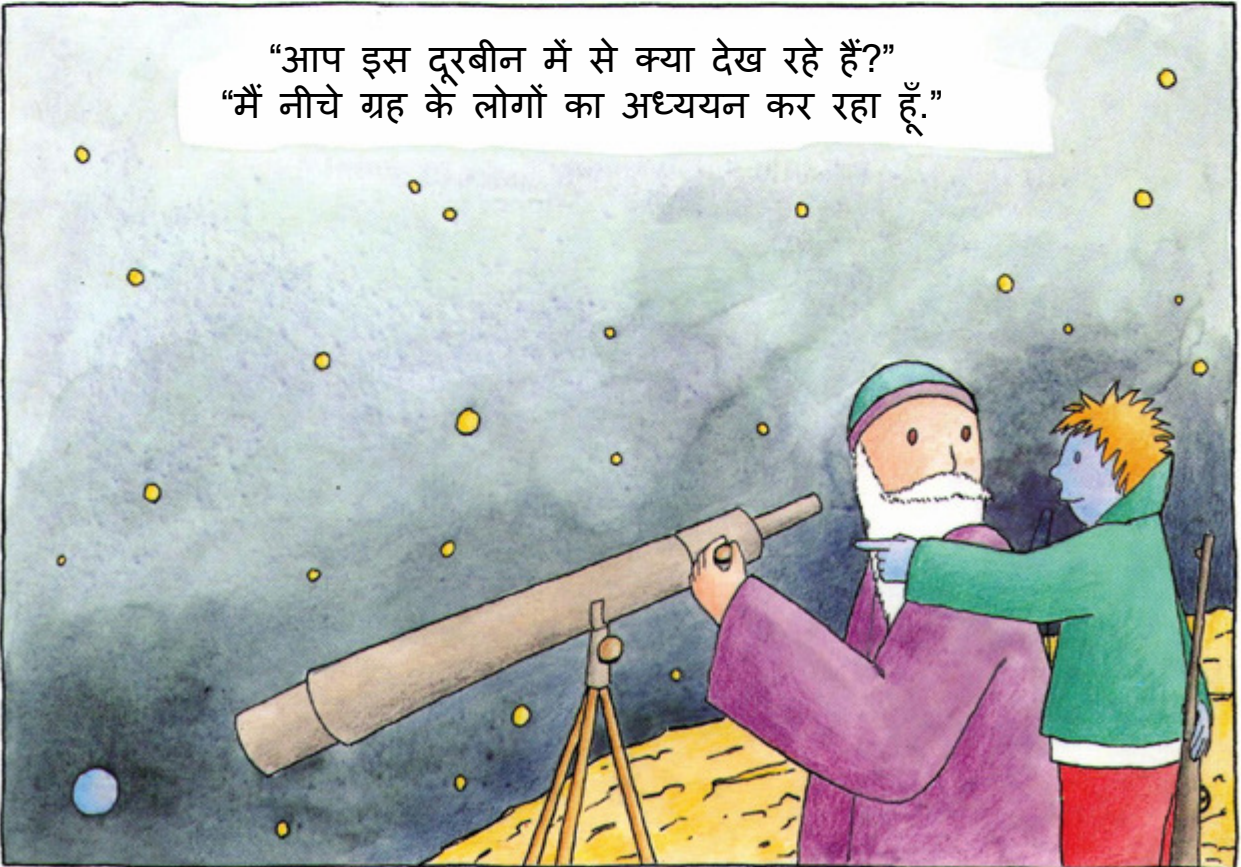 “आप इस दूरबीन में से क्या देख रहे हैं?”
“मैं नीचे ग्रह के लोगों का अध्ययन कर रहा हूँ.”